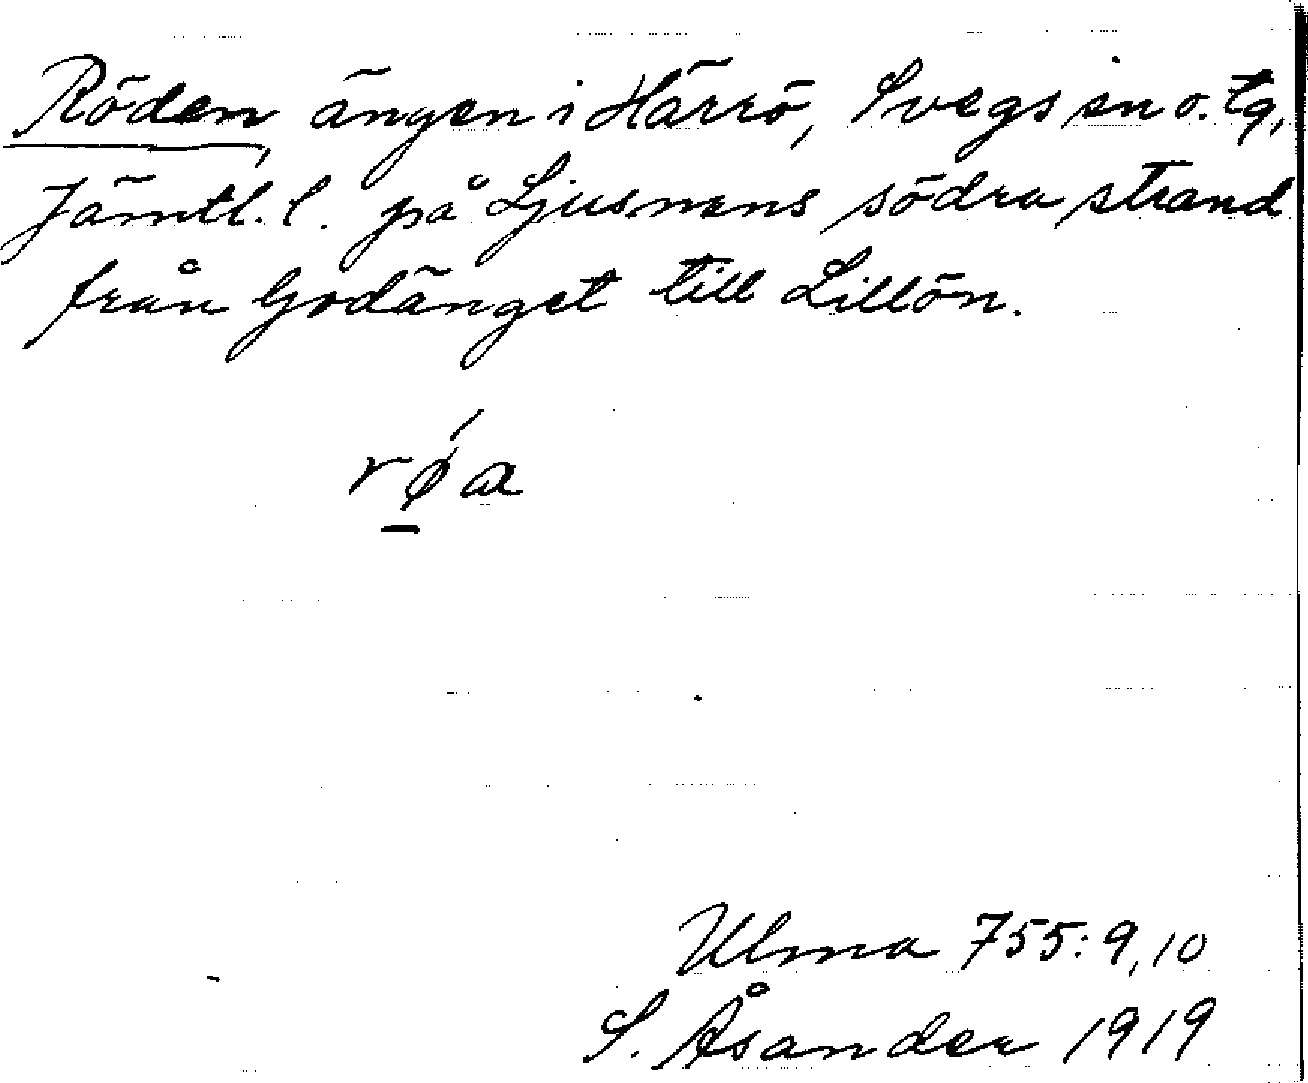 Röden, ängen i Härrö, Svegs sn o. tg,
Jämtl. l. på Ljusnans södra strand
från Godänget till Lillön.
rǿa
Ulma 755: 9, 10
S. Åsander 1919